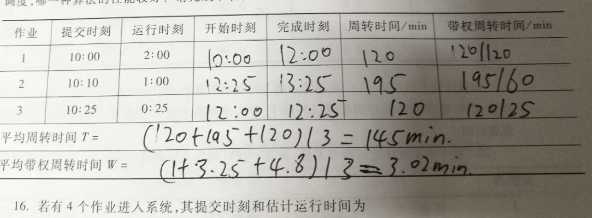 作业 提交时刻 运行时刻 开始时刻 完成时刻 周转时间/min 带权周转时间/min
1 10:00 2:00 10:00 12:00 120 120/120
2 10:10 1:00 12:25 13:25 195 195/60
3 10:25 0:25 12:00 12:25 120 120/25
平均周转时间 T = (120+195+120)/3 = 145min.
平均带权周转时间 W = (1+3.25+4.8)/3=3.02min.
16. 若有 4 个作业进入系统,其提交时刻和估计运行时间为